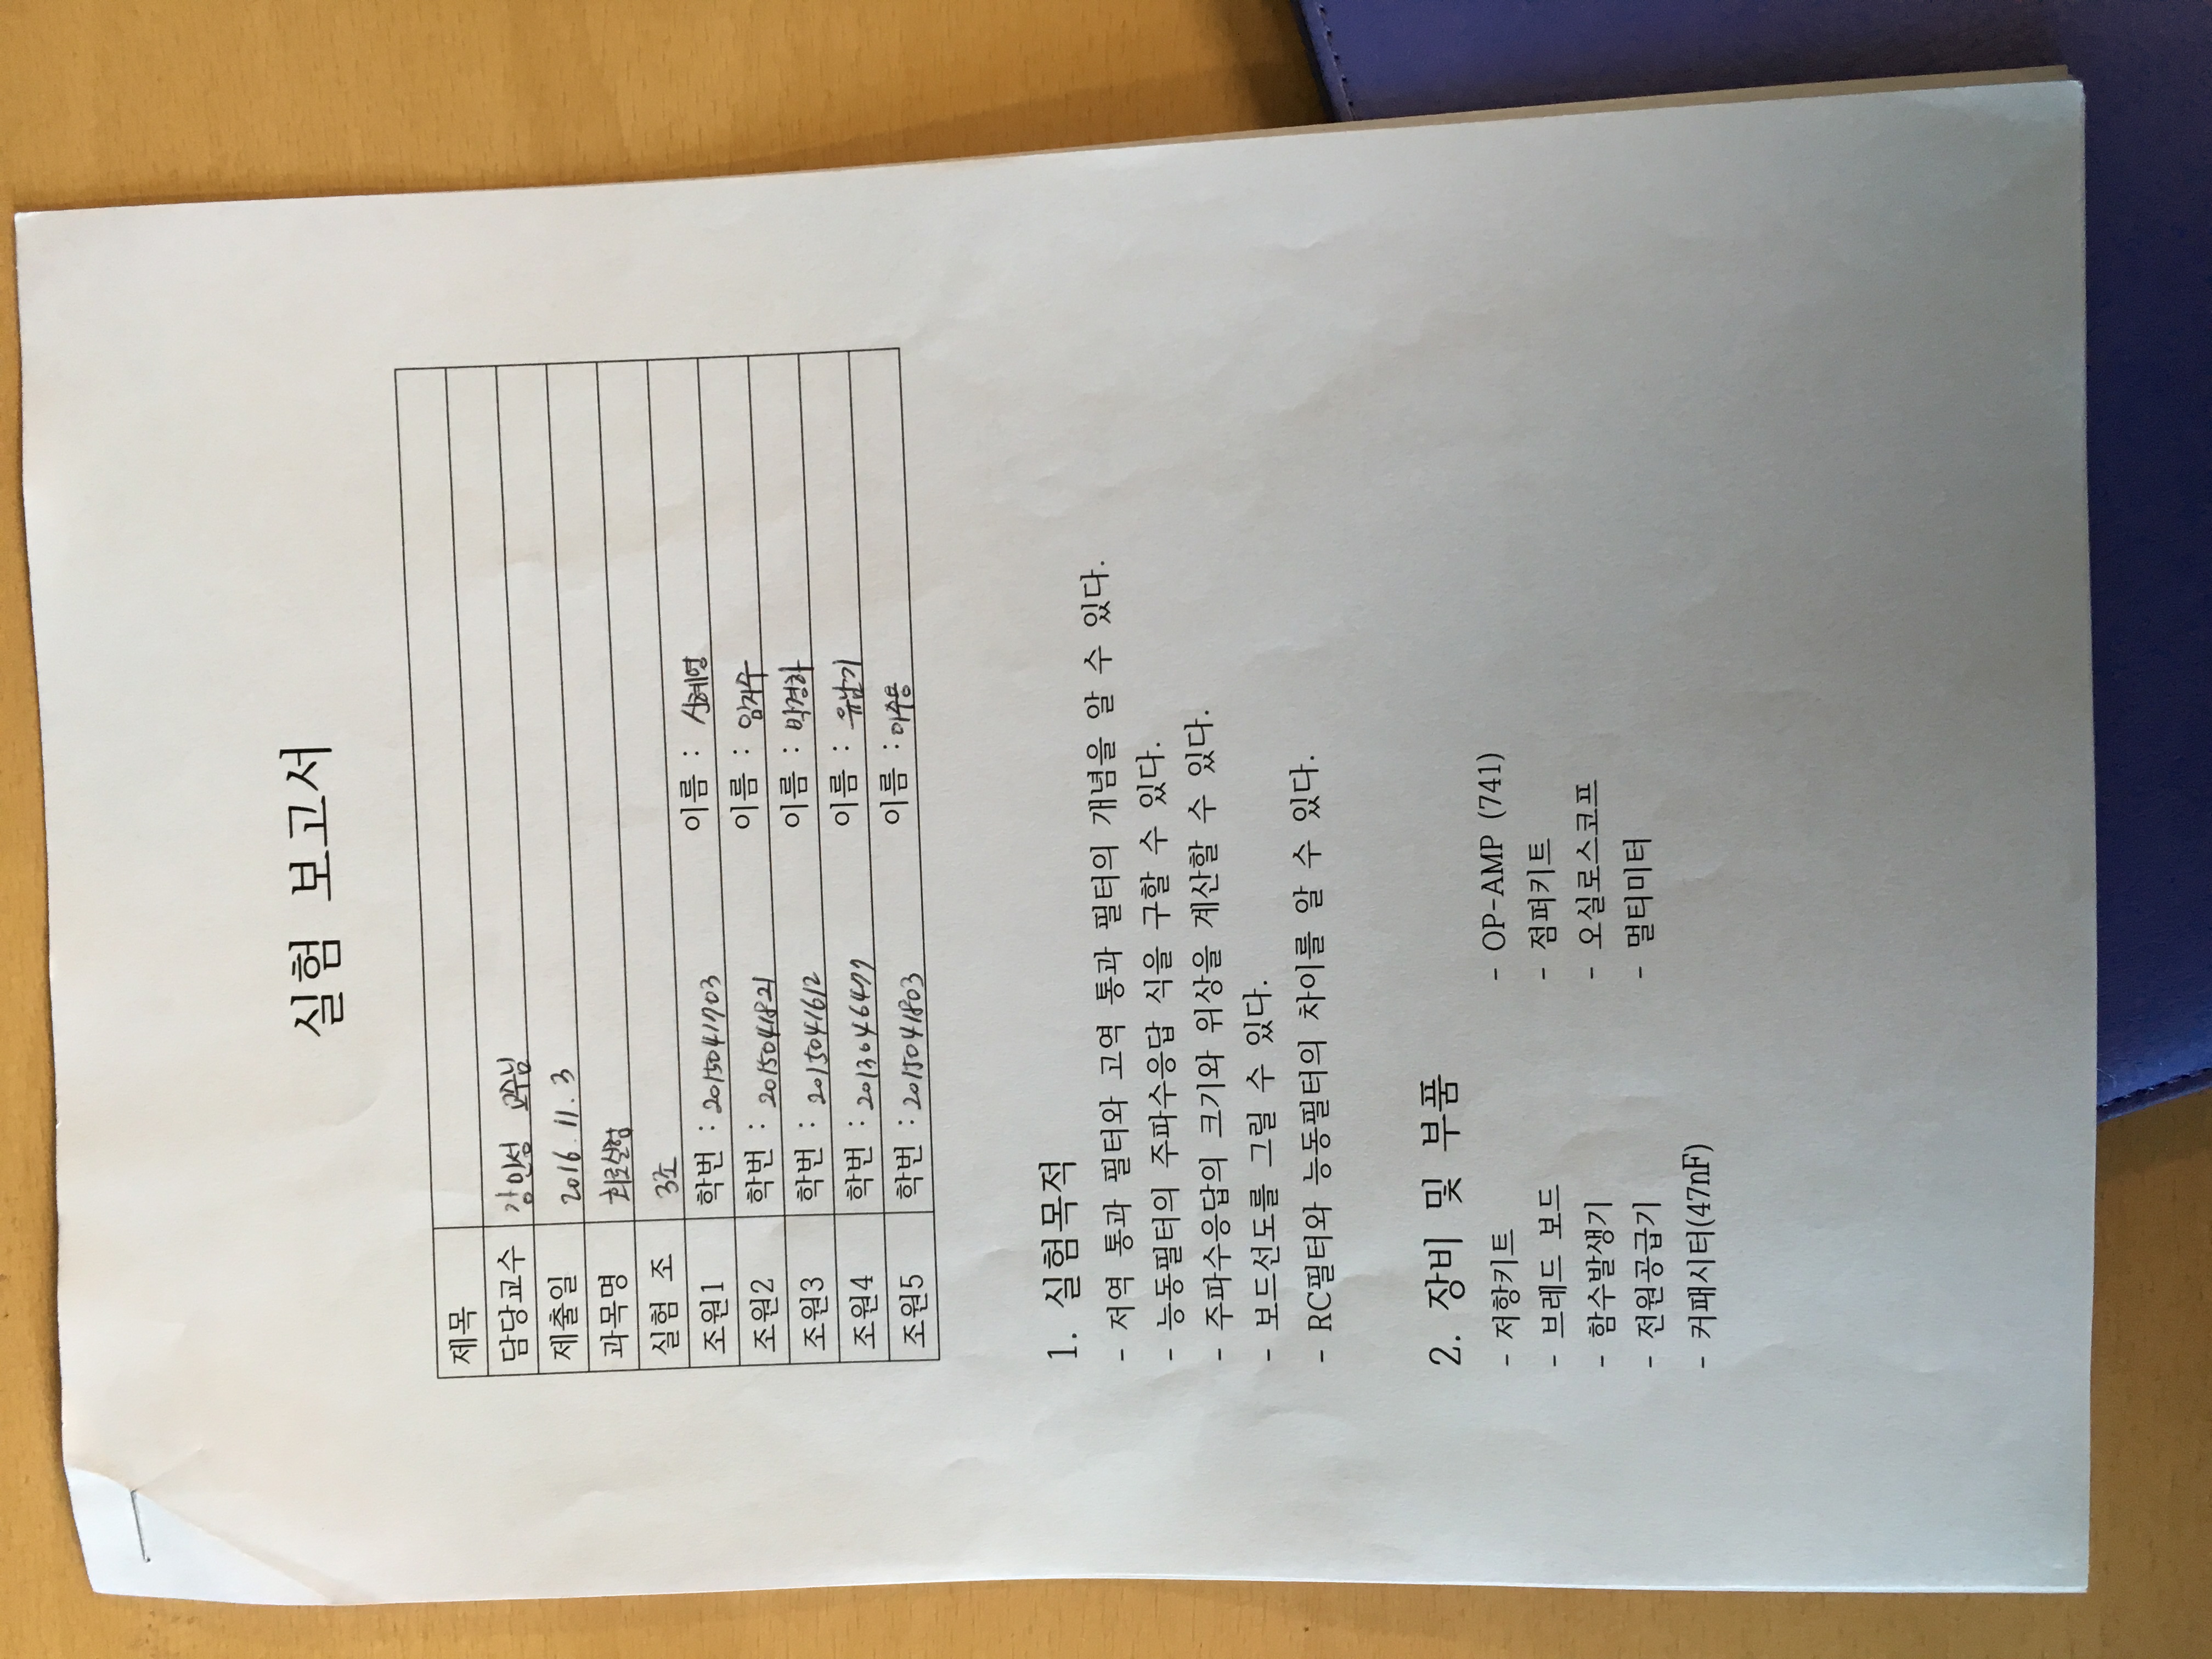 실험 보고서
제목
담당교수 강인성 교수님
제출일 2016. 11. 3
과목명 회로실험
실험 조 3조
조원1 학번 : 2015041703 이름 : 신혜영
조원2 학번 : 2015041821 이름 : 임지수
조원3 학번 : 2015041612 이름 : 박경하
조원4 학번 : 2013046477 이름 : 유남기
조원5 학번 : 2015041803 이름 : 이수용
1. 실험목적
- 저역 통과 필터와 고역 통과 필터의 개념을 알 수 있다.
- 능동필터의 주파수응답 식을 구할 수 있다.
- 주파수응답의 크기와 위상을 계산할 수 있다.
- 보드선도를 그릴 수 있다.
- RC필터와 능동필터의 차이를 알 수 있다.
2. 장비 및 부품
- 저항키트 - OP-AMP (741)
- 브레드 보드 - 점퍼키트
- 함수발생기 - 오실로스코프
- 전원공급기 - 멀티미터
- 커패시터(47nF)